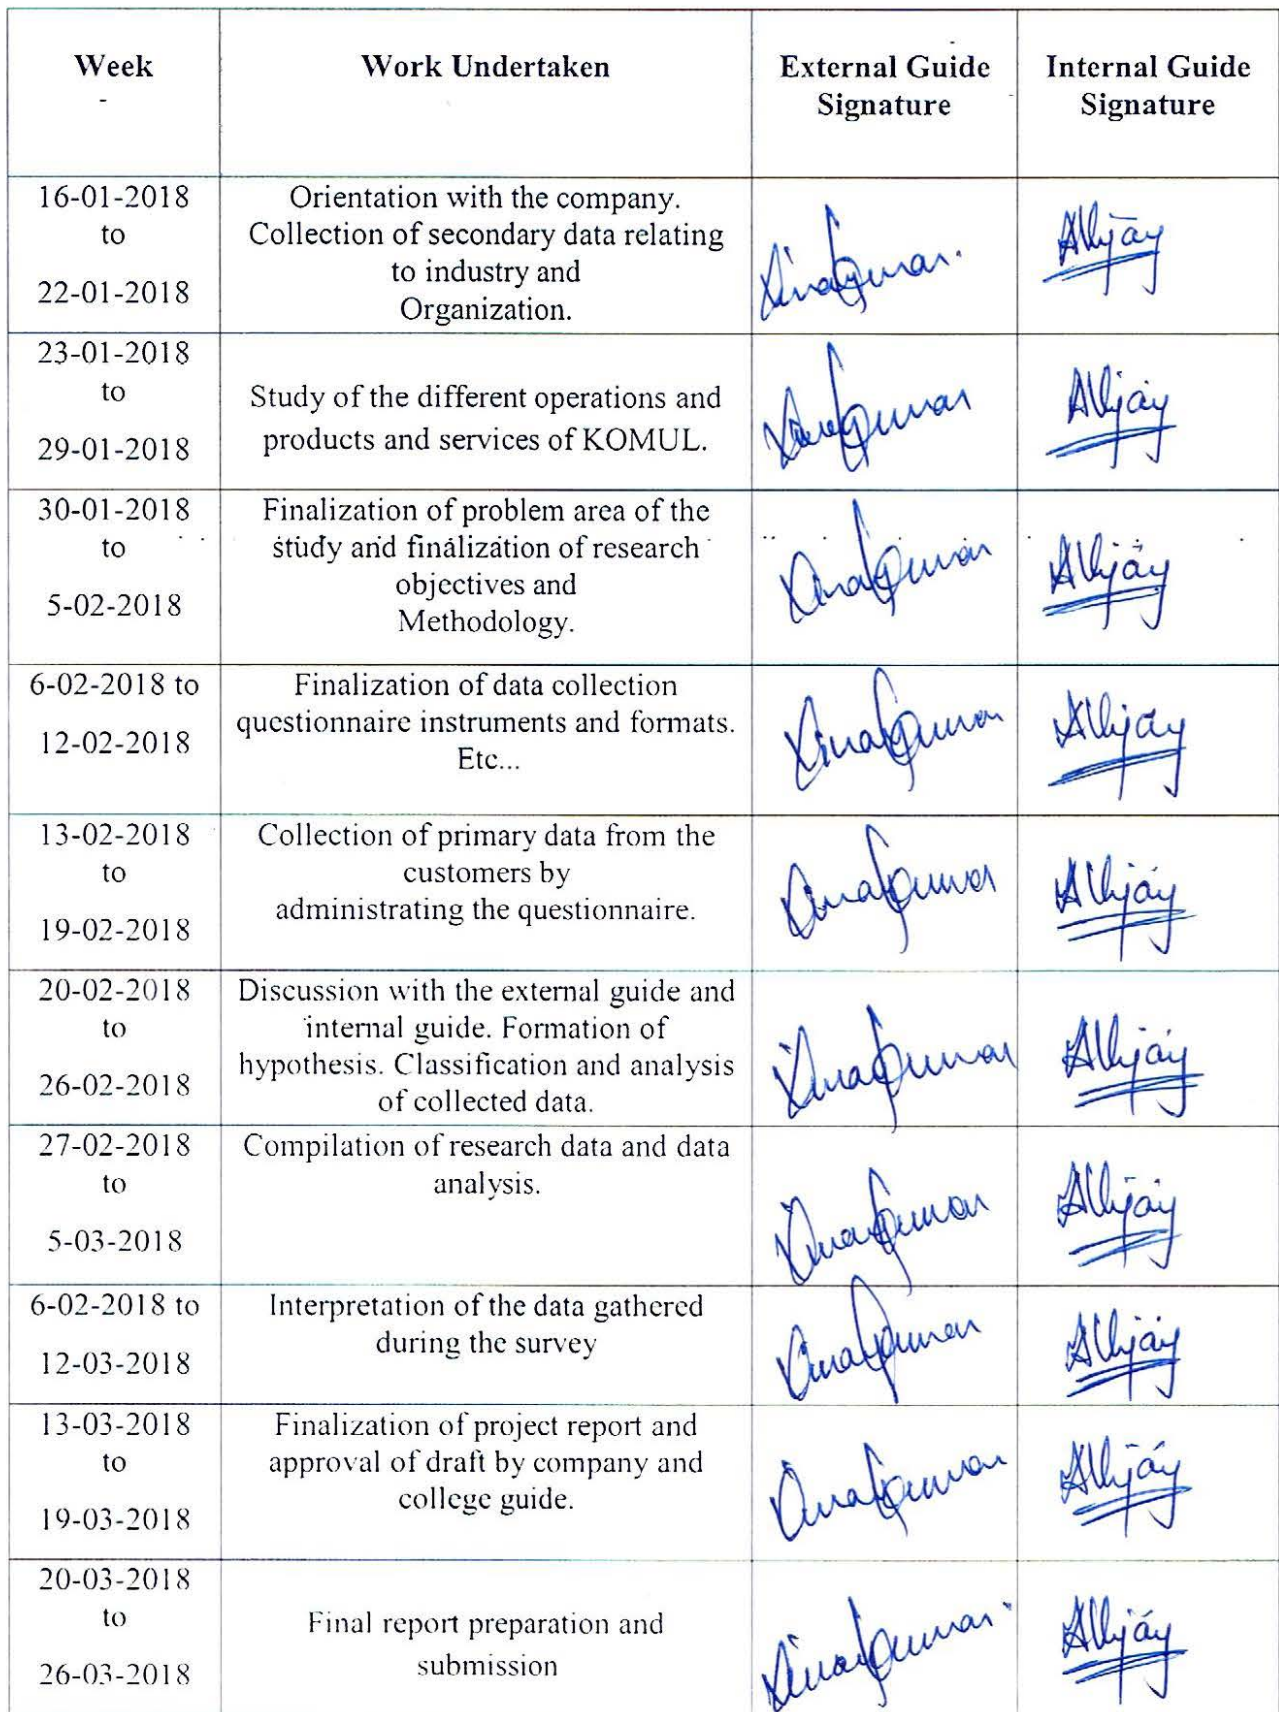 Week
Work Undertaken
External Guide
Signature
Internal Guide
Signature
16-01-2018
to
22-01-2018
Orientation with the company.
Collection of secondary data relating
to industry and
Organization.
23-01-2018
to
29-01-2018
Study of the different operations and
products and services of KOMUL.
30-01-2018
to
5-02-2018
Finalization of problem area of the
study and finalization of research
objectives and
Methodology.
6-02-2018 to
12-02-2018
Finalization of data collection
questionnaire instruments and formats.
Etc...
13-02-2018
to
19-02-2018
Collection of primary data from the
customers by
administrating the questionnaire.
20-02-2018
to
26-02-2018
Discussion with the external guide and
internal guide. Formation of
hypothesis. Classification and analysis
of collected data.
27-02-2018
to
5-03-2018
Compilation of research data and data
analysis.
6-02-2018 to
12-03-2018
Interpretation of the data gathered
during the survey
13-03-2018
to
19-03-2018
Finalization of project report and
approval of draft by company and
college guide.
20-03-2018
to
26-03-2018
Final report preparation and
submission